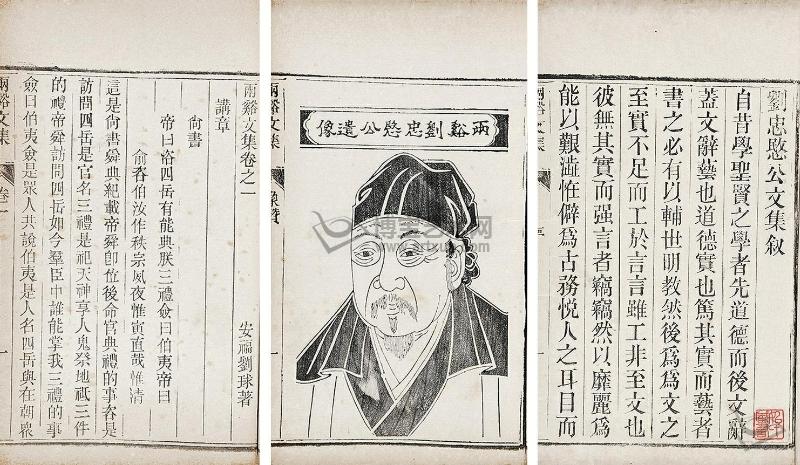 劉忠愍公文集叙
自昔學聖賢之學者先道德而後文辭
蓋文辭藝也道德實也篤其實而藝者
書之必有以輔世明教然後爲爲文之
至實不足而工於言言雖工非至文也
彼無其實而强言者竊竊然以靡麗爲
能以艱澁恠僻爲古務悅人之耳目而
兩谿文集
序
一
兩谿劉忠愍公遺像
兩谿文集
像贊
兩谿文集卷之一
安福劉球著
講章
尙書
帝曰咨四岳有能典朕三禮僉曰伯夷帝曰
俞咨伯汝作秩宗夙夜惟寅直哉惟清
這是尙書舜典紀載帝舜卽位後命官典禮的事咨是
訪問四岳是官名三禮是祀天神享人鬼祭地祇三件
的禮帝舜訪問四岳如今羣臣中誰能掌我三禮的事
僉曰伯夷僉是眾人共說伯夷是人名四岳與在朝眾
兩谿文集
卷一
一
博宝艺术网
www.artxun.com